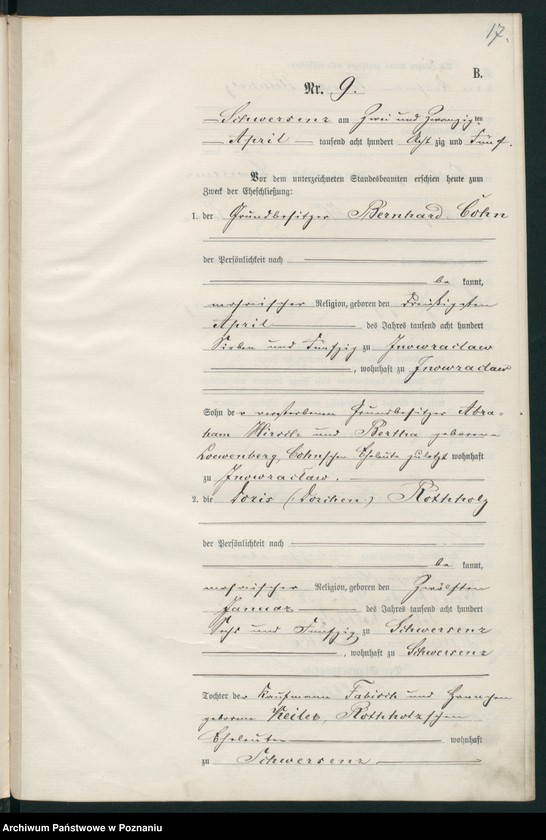 17.
B.
Nr. 9.
Schwersenz am Zwei und Zwanzigten
April tausend acht hundert Acht zig und Fünf.
Vor dem unterzeichneten Standesbeamten erschien heute zum
Zweck der Eheschließung:
1. der Grundbesitzer Bernhard Cohn
der Persönlichkeit nach
be kannt,
mosaischer Religion, geboren den Dreißigsten
April des Jahres tausend acht hundert
Sieben und Fünfzig zu Inowraclaw
, wohnhaft zu Inowraclaw
Sohn der verstorbenen Grundbesitzer Abra-
ham Hirsch und Bertha geborene
Loewenberg, Cohnschen Eheleute zuletzt wohnhaft
zu Inowraclaw.
2. die Doris (Dorchen) Rothholz
der Persönlichkeit nach
be kannt,
mosaischer Religion, geboren den Zwölften
Januar des Jahres tausend acht hundert
Sechs und Fünfzig zu Schwersenz
, wohnhaft zu Schwersenz
Tochter der Kaufmann Fabisch und Hannchen
geborene Rothholzschen
Eheleute wohnhaft
zu Schwersenz
Archiwum Państwowe w Poznaniu